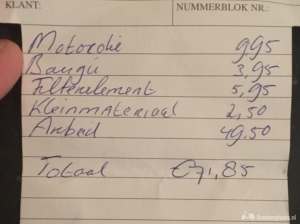 KLANT: NUMMERBLOK NR.:
Motorolie 995
Bougie 3,95
Filterelement 5,95
Kleinmateriaal 2,50
Arbeid 49.50
Totaal € 71,85